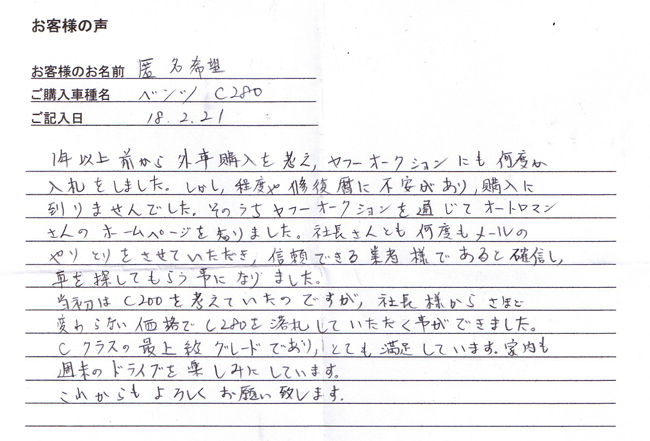 お客様の声
お客様のお名前 匿名希望
ご購入車種名 ベンツ C280
ご記入日 18.2.21
1年以上前から外車購入を考え、ヤフーオークションにも何度か
入札をしました。しかし、程度や修復暦に不安があり、購入に
到りませんでした。そのうちヤフーオークションを通じてオートロマン
さんのホームページを知りました。社長さんとも何度もメールの
やりとりをさせていただき、信頼できる業者様であると確信し、
車を探してもらう事になりました。
当初はC200を考えていたのですが、社長様からさほど
変わらない価格でC280を落札していただく事ができました。
Cクラスの最上級グレードであり、とても満足しています。家内も
週末のドライブを楽しみにしています。
これからもよろしくお願い致します。